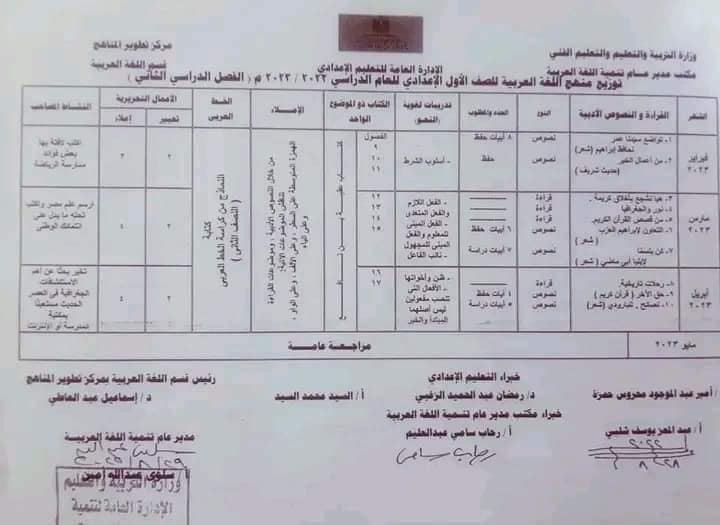 وزارة التربية والتعليم والتعليم الفني
مركز تطوير المناهج
مكتب مدير عام تنمية اللغة العربية
الإدارة العامة للتعليم الإعدادي
قسم اللغة العربية
توزيع منهج اللغة العربية للصف الأول الإعدادي للعام الدراسي ٢٠٢٢ / ٢٠٢٣ م ( الفصل الدراسي الثاني )
الشهر
القراءة و النصوص الأدبية
النوع
العدد والمطلوب
تدريبات لغوية (النحو)
الكتاب ذو الموضوع الواحد
الإملاء
الخط العربى
الأعمال التحريرية
تعبير
إملاء
النشاط المصاحب
فبراير ٢٠٢٣
١- تواضع سيدنا عمر
لحافظ إبراهيم (شعر)
٢- من أعمال الخير
(حديث شريف )
نصوص
نصوص
٨ أبيات حفظ
حفظ
- أسلوب الشرط
الفصول
٩
١٠
١١
٢
٣
اكتب لافتة بها
بعض فوائد
ممارسة الرياضة
كتاب عقبة بن نافع
الهمزة المتوسطة على السطر، وعلى الألف، وعلى الواو، وعلى الياء.
من خلال النصوص الأدبية، وموضوعات القراءة
النماذج من كراسة الخط العربى
كتابة
( النصف الثانى )
مارس ٢٠٢٣
٣- هيا نشجع بأخلاق كريمة .
٤- نور والجغرافيا
٥- من قصص القرآن الكريم.
٦- التعاون لإبراهيم العزب
( شعر )
٧- كن بلسما
لإيليا أبي ماضي ( شعر )
قراءة
قراءة
قراءة
نصوص
نصوص
٦ أبيات حفظ
٧ أبيات دراسة
- الفعل اللازم
والفعل المتعدى
- الفعل المبنى
للمعلوم والفعل
المبنى للمجهول
- نائب الفاعل
١٢
١٣
١٤
١٥
٢
٤
ارسم علم مصر واكتب
تحته ما يدل على
انتمائك الوطنى
أبريل ٢٠٢٣
٨- رحلات تاريخية.
٩- حق الآخر ( قرآن كريم )
١٠- نصائح - للبارودي (شعر)
قراءة
نصوص
نصوص
٤ أبيات حفظ
٥ أبيات دراسة
- ظن وأخواتها
- الأفعال التى
تنصب مفعولين
ليس أصلهما
المبتدأ والخبر
١٦
١٧
٢
٤
تخير بحثًا عن أهم
الاستكشافات
الجغرافية فى العصر
الحديث مستعينًا
بمكتبة
المدرسة أو الإنترنت
مايو ٢٠٢٣
مراجعة عامة
خبراء التعليم الإعدادي
رئيس قسم اللغة العربية بمركز تطوير المناهج
أ/ أمير عبد الموجود محروس حمزة
د/ رمضان عبد الحميد الزغبي
أ / السيد محمد السيد
د / إسماعيل عبد العاطي
خبراء مكتب مدير عام تنمية اللغة العربية
أ/ عبد المعز يوسف شلبي
أ / رحاب سامي عبدالحليم
مدير عام تنمية اللغة العربية
رحاب سامى
٢٠٢٢/٨/٢٨
أ / سلوى عبدالله أمين
وزارة التربية والتعليم
الإدارة العامة لتنمية